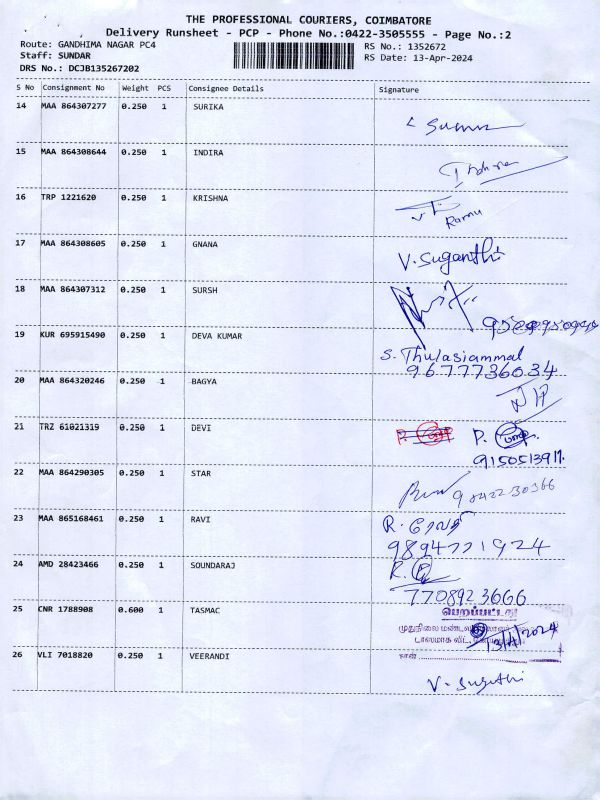 THE PROFESSIONAL COURIERS, COIMBATORE
Delivery Runsheet - PCP - Phone No.:0422-3505555 - Page No.:2
Route: GANDHIMA NAGAR PC4
RS No.: 1352672
Staff: SUNDAR
RS Date: 13-Apr-2024
DRS No.: DCJB135267202
S No Consignment No Weight PCS Consignee Details Signature
14 MAA 864307277 0.250 1 SURIKA
15 MAA 864308644 0.250 1 INDIRA
16 TRP 1221620 0.250 1 KRISHNA
Ramu
17 MAA 864308605 0.250 1 GNANA
V. Suganthi
18 MAA 864307312 0.250 1 SURSH
19 KUR 695915490 0.250 1 DEVA KUMAR
S. Thulasiammal
9677736034
20 MAA 864320246 0.250 1 BAGYA
21 TRZ 61021319 0.250 1 DEVI
P.
22 MAA 864290305 0.250 1 STAR
9042230366
23 MAA 865168461 0.250 1 RAVI
R. ரேவதி
9894771924
24 AMD 28423466 0.250 1 SOUNDARAJ
R.
7708923666
25 CNR 1788908 0.600 1 TASMAC
பெறப்பட்டது
முதுநிலை மண்டல
டாஸ்மாக் லிட்.,
13/4/2024
நாள்
26 VLI 7018820 0.250 1 VEERANDI